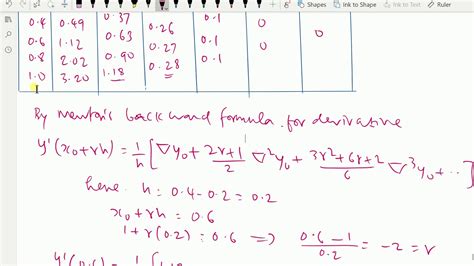 Ink to Shape Ink to Text
0.4 0.49 0.37 0.26 0.1 0
0.6 1.12 0.63 0.27 0.1 0 0
0.8 2.02 0.90 0.28 0.1
1.0 3.20 1.18
By Newton's backward formula for derivative
y'(x₀+rh) = 1/h [∇y₀ + (2r+1)/2 ∇²y₀ + (3r²+6r+2)/6 ∇³y₀ + ...]
here h = 0.4-0.2 = 0.2
x₀+rh = 0.6
1+r(0.2) = 0.6 ⇒ (0.6-1)/0.2 = -2 = r